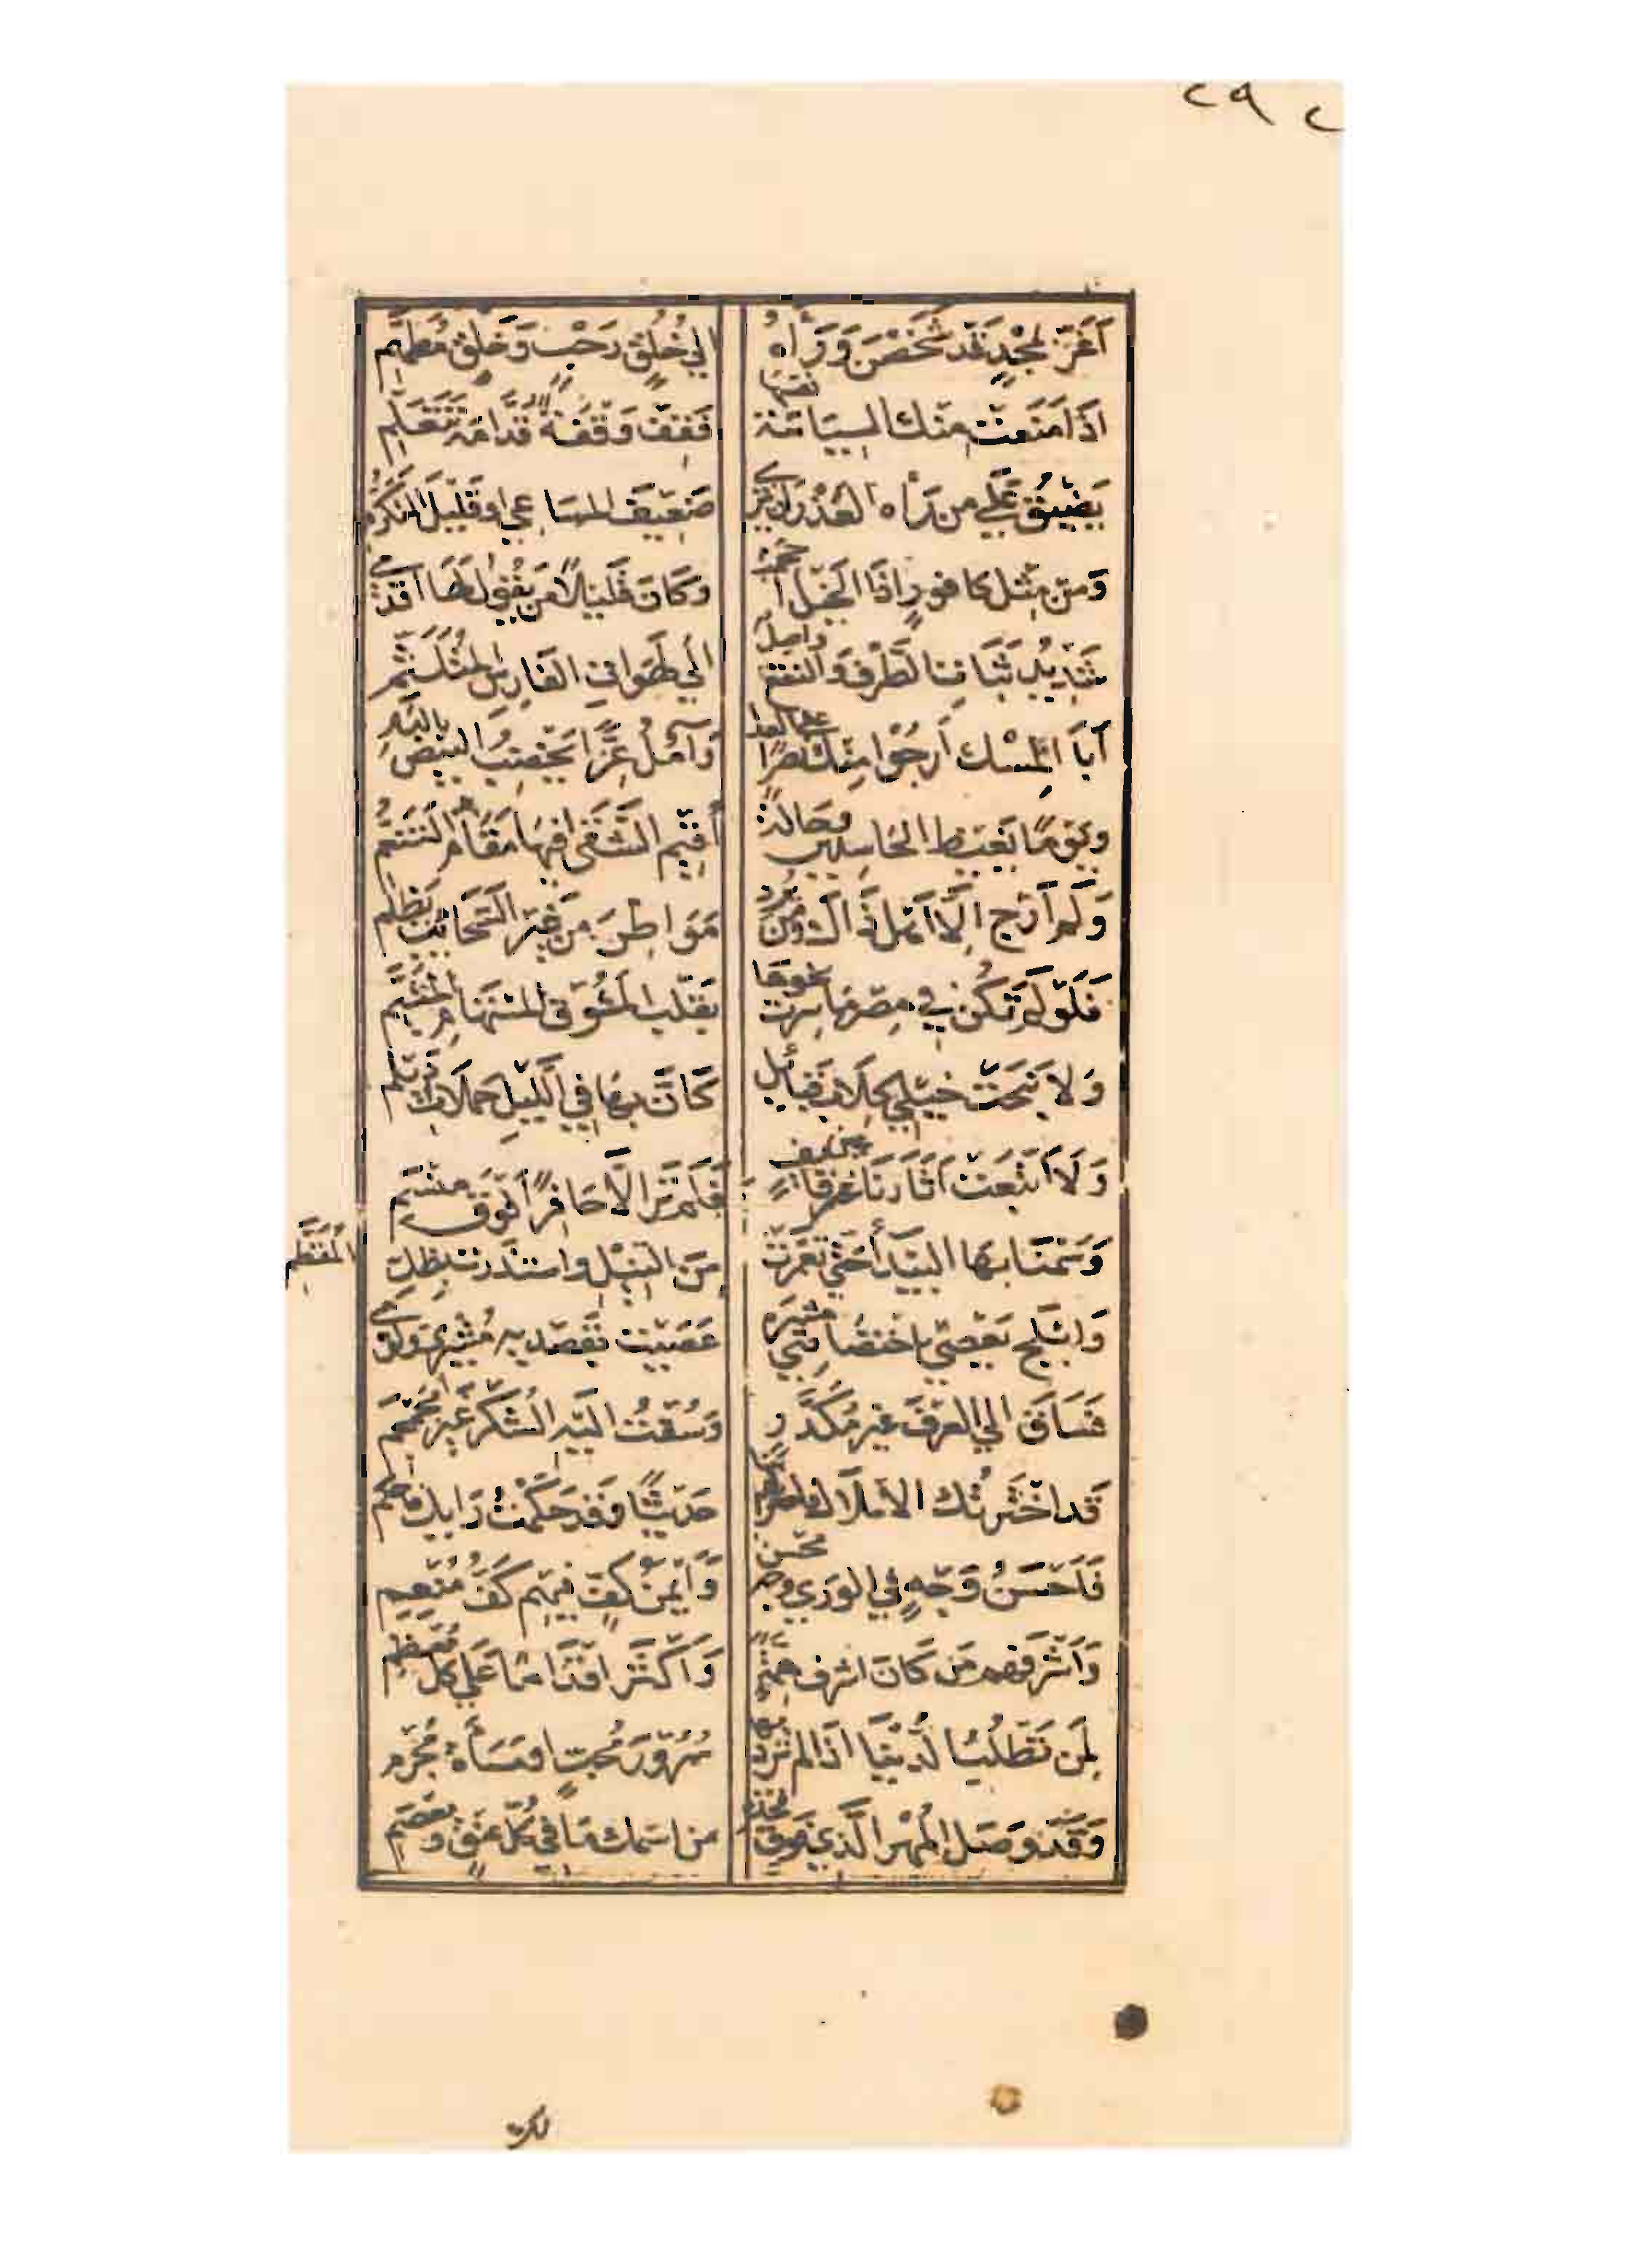 ٢٩٢
أَغَرَّ بمجْدٍ قَد شَخَصْنَ وَرَاهُ الي خُلُقٍ رَحْبٍ وَخَلْقٍ مُطَهَّمِ
اذَا مَنَعَتْ مِنْكَ السِيَاسَة نفسَهَا فَقِفْ وَقْفَةً قُدَّامَهُ تَتَعَلَّمِ
يَضِيْقُ عَلَي من رَأه العُذْرُ ان يُرَي ضَعِيفَ المسَاعِي او قَلِيْلَ التَكَرُّمِ
وَمَنْ مِثْلُ كافورٍ اذَا الخَيْلُ أحْجَمَتْ وَكَانَ قَلِيلاً مَن يَقُولُ لَهَا اقْدُمي
شَدِيدُ ثَبَات الطَّرْف وَالنقعُ واصِلٌ الَي لَهَوَاتِ الفَارِسِ المُتَلَثِّمِ
أَبَا المِسْك أَرجُوْا مِنْكَ نَصْرًا على العِدا وَآمُلُ عِزًّا يَخْضِبُ البِيْضَ بالدَّمِ
وَيَوْمًا يَغِيْظُ الحَاسِدِيْنَ وَحَالَةً أُقِيْمُ الشَّقَى فيهَا مَقَامَ التَنَعُّمِ
وَلَم أَرْجُ الَّا اهْلَ ذَاكَ وَمَنْ يُرِدْ مَوَاطِرَ مِن غَيْرِ السَّحَائِبِ يَظْلِمِ
فَلَوْ لَم تَكُنْ فِي مِصْرَ مَا سِرْت نحوَهَا بِقَلْبِ المَشُوقِ المُسْتَهَامِ المُتَيَّمِ
وَلا نَبَحَتْ خَيْلِي كِلَابُ قَبَائِلٍ كَأَنَّ بِهَا فِي اللَّيْلِ حَمَلَات دَيْلَمِ
وَلَا اتَّبَعَتْ آثَارَنَا عَيْنُ قَائِفٍ فَلَم تَرَ الَّا حَافِرًا فَوْقَ مَنْسِمِ
وَسَمْنَا بِهَا البَيْدَاء حَتَّي تَغَمَّرَتْ مِنَ النِيْلِ وَاسْتَذْرَت بِظِلِّ المُقَطَّمِ
وَابْلَجَ يَعْصِي بِاخْتِصَاصِي مُشِيْرَهُ عَصَيْتُ بِقَصْدِيهِ مُشِيْرِي وَلُوَّمِي
فَسَاقَ الي العُرْفَ غير مُكَدَّرٍ وَسُقْتُ اليْهِ الشُكْرَ غَيْرَ مُجَمْجَمِ
قَد اخْتَرْتُكَ الامْلَاكَ فاخْتَرْ لهم بنا حَدِيْثًا وَقَد حَكَّمْتُ رَايَكَ فاحكُمِ
فَأَحْسَنُ وَجْهٍ فِي الوَرَي وَجْه مُحْسِن وَأَيْمَنُ كَفٍّ فِيهِم كَفُّ مُنْعِمِ
وَأَشْرَفهم مَن كَانَ اشرف هِمَّةً وَأَكْثَر اقْدَامًا عَلَي كُلِّ مُعْظَمِ
لِمَن تَطْلُبُ الدُنْيَا اذَا لم تُرِدْ بِهَا سُرُوْرَ مُحِبٍّ او مَسَأَةَ مُجْرِمِ
وَقَد وَصَلَ المُهْرُ الَّذِي فَوْقَ فَخْذِهِ مِن اسْمِكَ مَا فِي كُلِّ عُنْقٍ وَمِعْصَمِ
لك